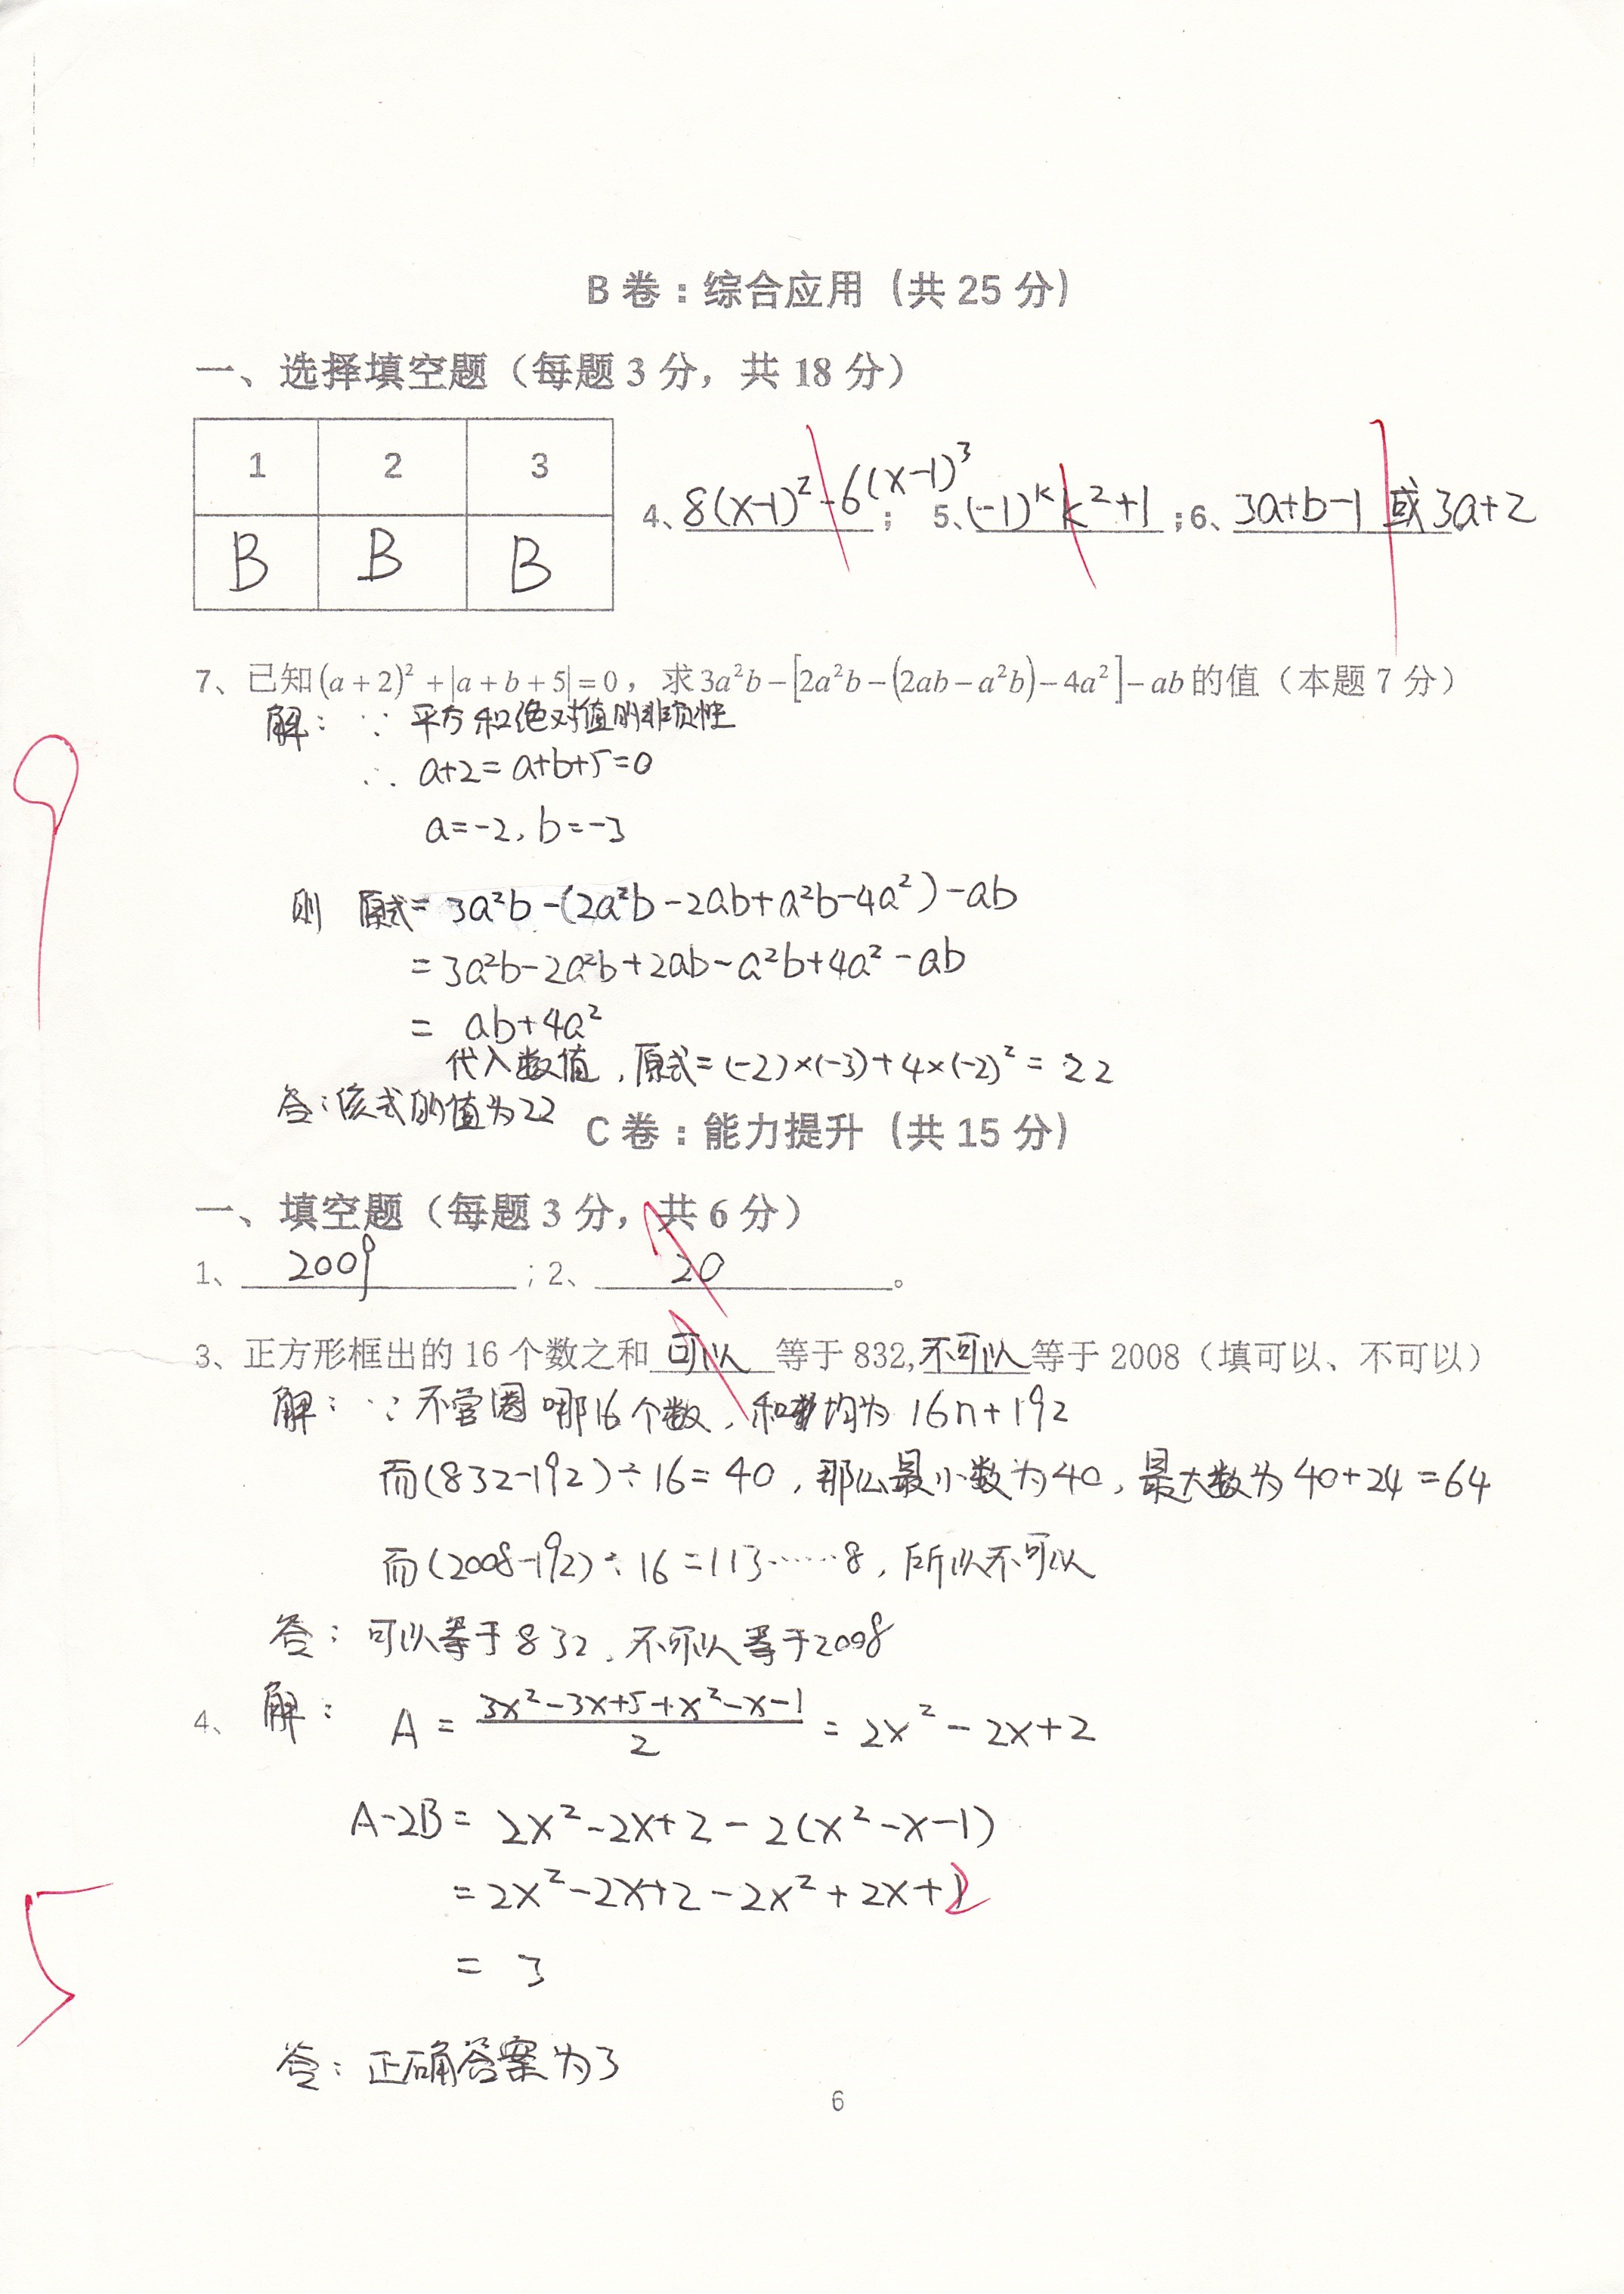 B 卷：综合应用（共 25 分）
一、选择填空题（每题 3 分，共 18 分）
1 2 3
B B B
4、8(x-1)²-6(x-1)³； 5、(-1)ᵏk²+1；6、3a+b-1 或 3a+2
7、已知(a+2)²+|a+b+5|=0，求3a²b-[2a²b-(2ab-a²b)-4a²]-ab的值（本题 7 分）
解：∵ 平方和绝对值的非负性
∴ a+2=a+b+5=0
a=-2, b=-3
则 原式=3a²b-(2a²b-2ab+a²b-4a²)-ab
=3a²b-2a²b+2ab-a²b+4a²-ab
= ab+4a²
代入数值，原式=(-2)×(-3)+4×(-2)²=22
答：该式的值为22
C 卷：能力提升（共 15 分）
一、填空题（每题 3 分，共 6 分）
1、2009；2、20。
3、正方形框出的 16 个数之和可以等于 832,不可以等于 2008（填可以、不可以）
解：∵ 不管圈哪16个数，和均为 16n+192
而(832-192)÷16=40，那么最小数为40，最大数为40+24=64
而(2008-192)÷16=113……8，所以不可以
答：可以等于832，不可以等于2008
4、解： A = (3x²-3x+5+x²-x-1)/2 = 2x²-2x+2
A-2B= 2x²-2x+2-2(x²-x-1)
=2x²-2x+2-2x²+2x+1
= 3
答：正确答案为3
6